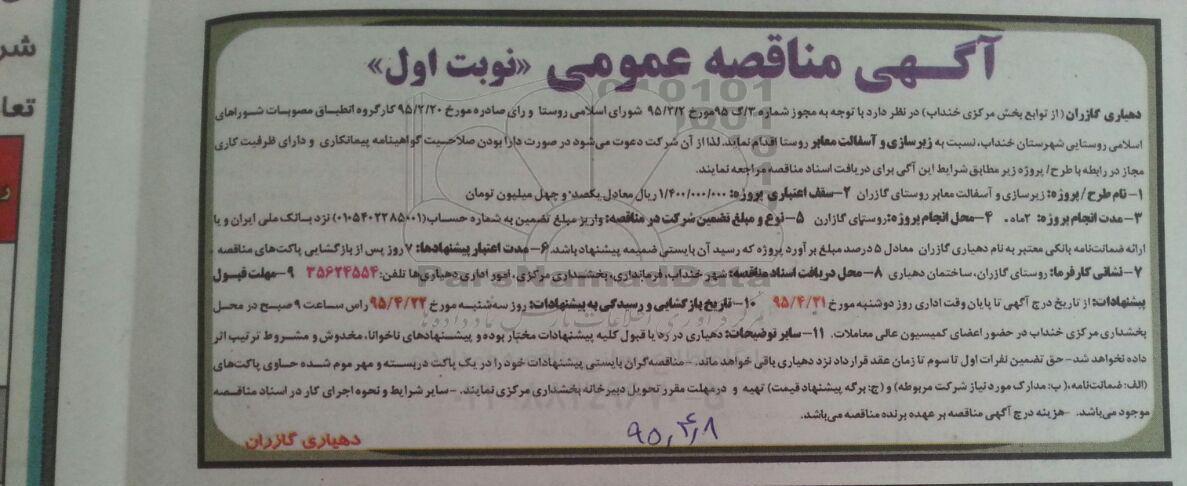 آگهی مناقصه عمومی «نوبت اول»
دهیاری گازران (از توابع بخش مرکزی خنداب) در نظر دارد با توجه به مجوز شماره ۳/گ ۹۵مورخ ۹۵/۳/۲ شورای اسلامی روستا و رای صادره مورخ ۹۵/۲/۲۰ کارگروه انطباق مصوبات شوراهای
اسلامی روستایی شهرستان خنداب، نسبت به زیرسازی و آسفالت معابر روستا اقدام نماید. لذا از آن شرکت دعوت می‌شود در صورت دارا بودن صلاحیت گواهینامه پیمانکاری و دارای ظرفیت کاری
مجاز در رابطه با طرح/ پروژه زیر مطابق شرایط این آگی برای دریافت اسناد مناقصه مراجعه نمایند.
۱- نام طرح / پروژه: زیرسازی و آسفالت معابر روستای گازران ۲- سقف اعتباری پروژه: ۱/۴۰۰/۰۰۰/۰۰۰ ریال معادل یکصد و چهل میلیون تومان
۳- مدت انجام پروژه: ۲ماه. ۴- محل انجام پروژه: روستای گازران ۵- نوع و مبلغ تضمین شرکت در مناقصه: واریز مبلغ تضمین به شماره حساب(۰۱۰۵۴۰۲۲۸۵۰۰۱) نزد بانک ملی ایران و یا
ارائه ضمانت‌نامه بانکی معتبر به نام دهیاری گازران معادل ۵ درصد مبلغ برآورد پروژه که رسید آن بایستی ضمیمه پیشنهاد باشد. ۶- مدت اعتبار پیشنهادها: ۷ روز پس از بازگشایی پاکت‌های مناقصه .
۷- نشانی کارفرما: روستای گازران، ساختمان دهیاری ۸- محل دریافت اسناد مناقصه: شهر خنداب، فرمانداری، بخشداری مرکزی، امور اداری دهیاری‌ها تلفن: ۳۵۶۲۴۵۵۴ ۹- مهلت قبول
پیشنهادات: از تاریخ درج آگهی تا پایان وقت اداری روز دوشنبه مورخ ۹۵/۴/۲۱ ۱۰- تاریخ بازگشایی و رسیدگی به پیشنهادات: روز سه‌شنبه مورخ ۹۵/۴/۲۲ راس ساعت ۹ صبح در محل
بخشداری مرکزی خنداب در حضور اعضای کمیسیون عالی معاملات. ۱۱- سایر توضیحات: دهیاری در رد یا قبول کلیه پیشنهادات مختار بوده و پیشنهادهای ناخوانا، مخدوش و مشروط ترتیب اثر
داده نخواهد شد- حق تضمین نفرات اول تا سوم تا زمان عقد قرارداد نزد دهیاری باقی خواهد ماند. - مناقصه‌گران بایستی پیشنهادات خود را در یک پاکت دربسته و مهر و موم شده حاوی پاکت‌های
(الف: ضمانت‌نامه، (ب: مدارک مورد نیاز شرکت مربوطه) و (ج: برگه پیشنهاد قیمت) تهیه و درمهلت مقرر تحویل دبیرخانه بخشداری مرکزی نمایند. - سایر شرایط و نحوه اجرای کار در اسناد مناقصه
موجود می‌باشد. -هزینه درج آگهی مناقصه بر عهده برنده مناقصه می‌باشد.
۹۵،۴،۸
دهیاری گازران
ParsNamadData
شر
تعا